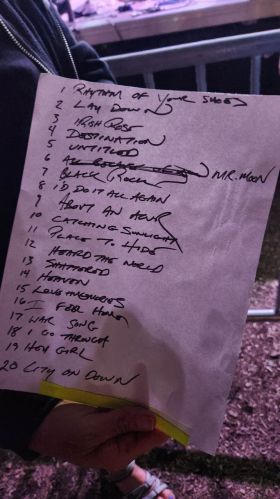 1 RHYTHM OF YOUR SHOES
2 LAY DOWN
3 IRISH ROSE
4 DESTINATION
5 UNTITLED
6 MR. MOON
7 BLACK ROCK
8 I'D DO IT ALL AGAIN
9 ABOUT AN HOUR
10 CATCHING SUNLIGHT
11 PLACE TO HIDE
12 HEARD THE WORLD
13 SHATTERED
14 HEAVEN
15 LOVE MEMORIES
16 I FEEL HOME
17 WAR SONG
18 I GO THROUGH
19 HEY GIRL
20 CITY ON DOWN